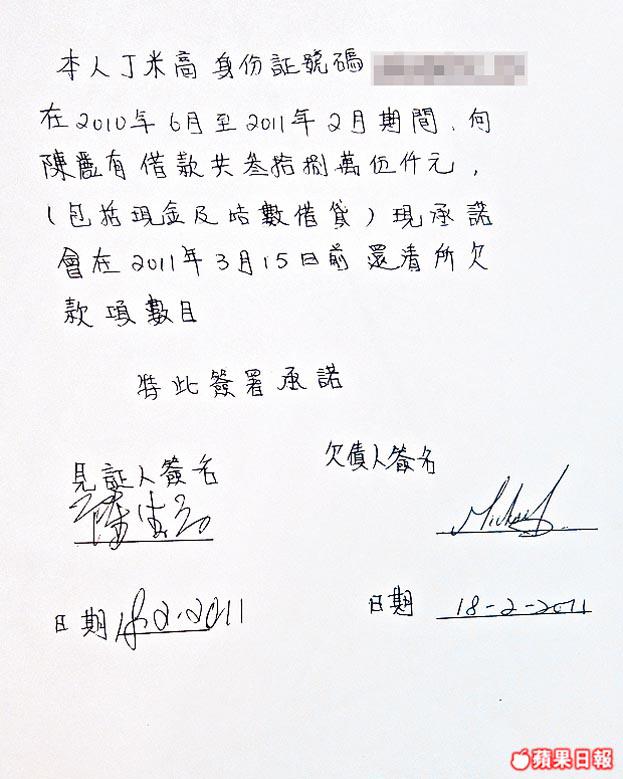 本人丁米高身份証號碼
在2010年6月至2011年2月期間、向
陳蠱有借款共叁拾捌萬伍仟元,
(包括現金及咭數借貸)現承諾
會在2011年3月15日前還清所欠
款項數目
特此簽署承諾
見証人簽名
欠債人簽名
Michael
日期 18.2.2011
日期 18-2-2011
蘋果日報